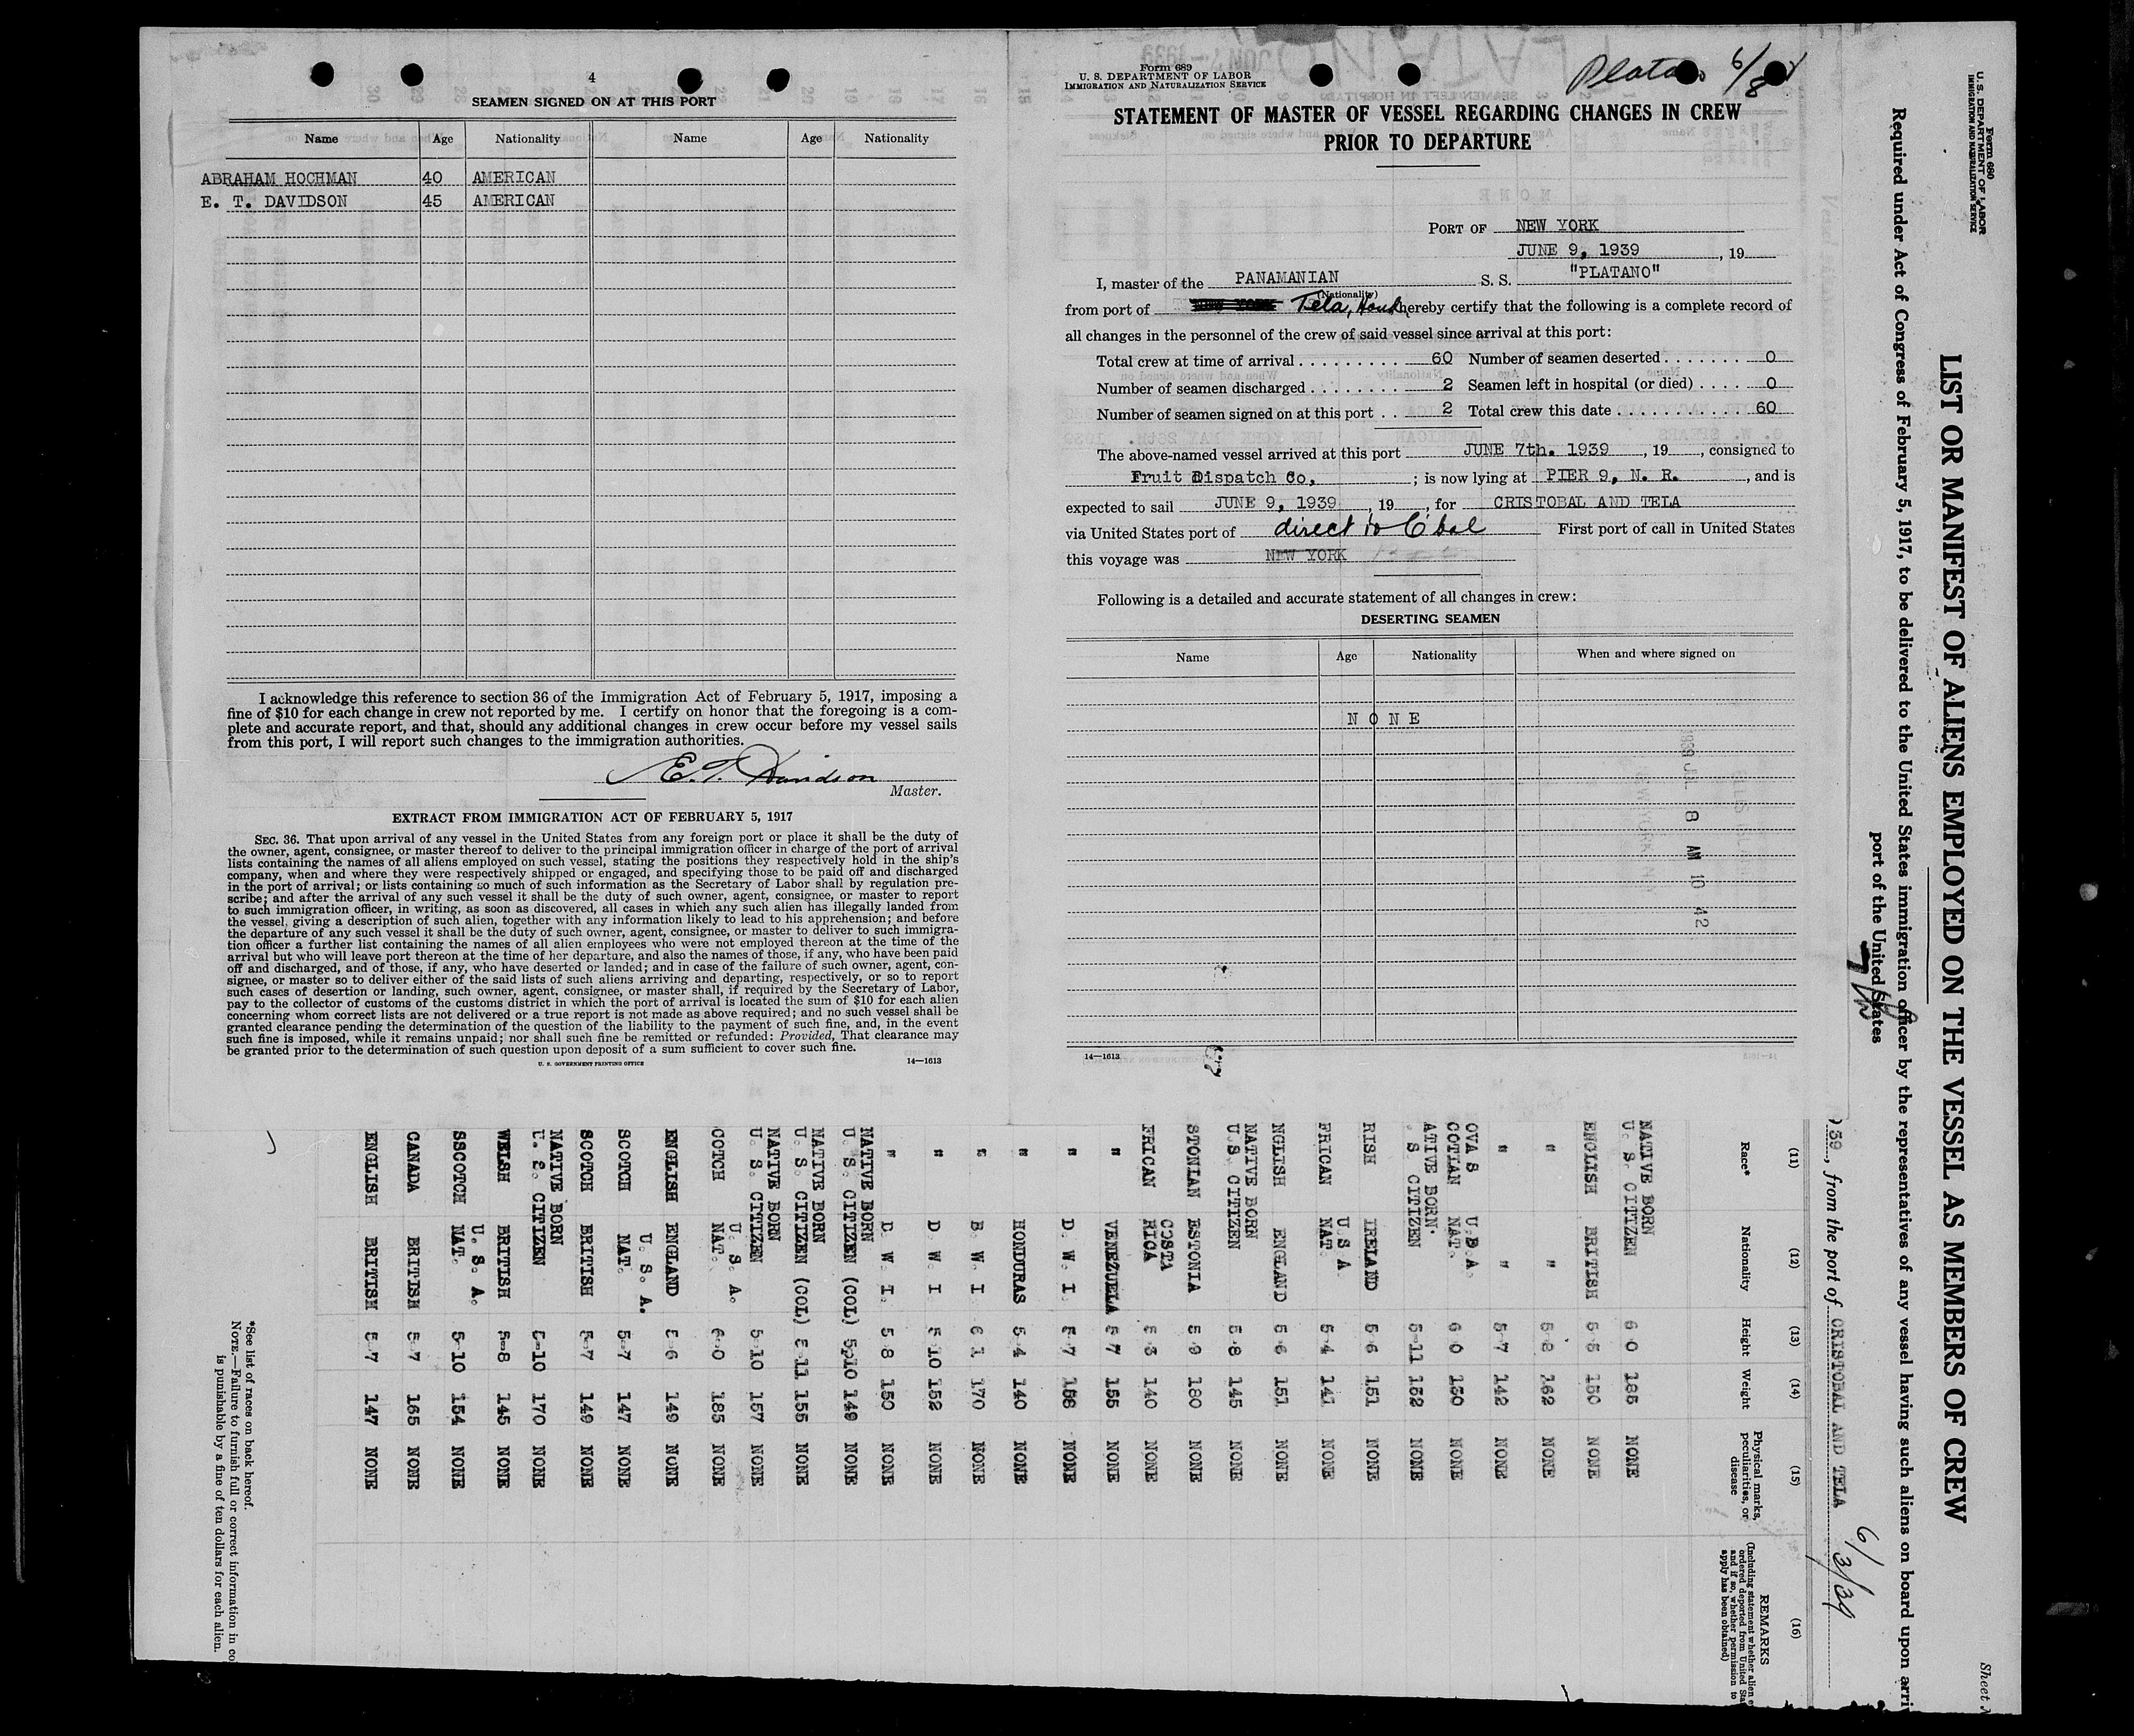 4
SEAMEN SIGNED ON AT THIS PORT
Name Age Nationality Name Age Nationality
ABRAHAM HOCHMAN 40 AMERICAN
E. T. DAVIDSON 45 AMERICAN
I acknowledge this reference to section 36 of the Immigration Act of February 5, 1917, imposing a
fine of $10 for each change in crew not reported by me. I certify on honor that the foregoing is a com-
plete and accurate report, and that, should any additional changes in crew occur before my vessel sails
from this port, I will report such changes to the immigration authorities.
E. T. Davidson
Master.
EXTRACT FROM IMMIGRATION ACT OF FEBRUARY 5, 1917
SEC. 36. That upon arrival of any vessel in the United States from any foreign port or place it shall be the duty of
the owner, agent, consignee, or master thereof to deliver to the principal immigration officer in charge of the port of arrival
lists containing the names of all aliens employed on such vessel, stating the positions they respectively hold in the ship's
company, when and where they were respectively shipped or engaged, and specifying those to be paid off and discharged
in the port of arrival; or lists containing so much of such information as the Secretary of Labor shall by regulation pre-
scribe; and after the arrival of any such vessel it shall be the duty of such owner, agent, consignee, or master to report
to such immigration officer, in writing, as soon as discovered, all cases in which any such alien has illegally landed from
the vessel, giving a description of such alien, together with any information likely to lead to his apprehension; and before
the departure of any such vessel it shall be the duty of such owner, agent, consignee, or master to deliver to such immigra-
tion officer a further list containing the names of all alien employees who were not employed thereon at the time of the
arrival but who will leave port thereon at the time of her departure, and also the names of those, if any, who have been paid
off and discharged, and of those, if any, who have deserted or landed; and in case of the failure of such owner, agent, con-
signee, or master so to deliver either of the said lists of such aliens arriving and departing, respectively, or so to report
such cases of desertion or landing, such owner, agent, consignee, or master shall, if required by the Secretary of Labor,
pay to the collector of customs of the customs district in which the port of arrival is located the sum of $10 for each alien
concerning whom correct lists are not delivered or a true report is not made as above required; and no such vessel shall be
granted clearance pending the determination of the question of the liability to the payment of such fine, and, in the event
such fine is imposed, while it remains unpaid; nor shall such fine be remitted or refunded: Provided, That clearance may
be granted prior to the determination of such question upon deposit of a sum sufficient to cover such fine.
U. S. GOVERNMENT PRINTING OFFICE 14—1613
Form 689
U. S. DEPARTMENT OF LABOR
IMMIGRATION AND NATURALIZATION SERVICE
Platano 6/8
STATEMENT OF MASTER OF VESSEL REGARDING CHANGES IN CREW
PRIOR TO DEPARTURE
PORT OF NEW YORK
JUNE 9, 1939, 19
I, master of the PANAMANIAN S. S. "PLATANO"
(Nationality)
from port of NEW YORK Tela, Hond, hereby certify that the following is a complete record of
all changes in the personnel of the crew of said vessel since arrival at this port:
Total crew at time of arrival 60 Number of seamen deserted 0
Number of seamen discharged 2 Seamen left in hospital (or died) 0
Number of seamen signed on at this port 2 Total crew this date 60
The above-named vessel arrived at this port JUNE 7th. 1939, 19, consigned to
Fruit Dispatch Co, ; is now lying at PIER 9, N. R., and is
expected to sail JUNE 9, 1939, 19, for CRISTOBAL AND TELA
via United States port of direct to C'bal First port of call in United States
this voyage was NEW YORK
Following is a detailed and accurate statement of all changes in crew:
DESERTING SEAMEN
Name Age Nationality When and where signed on
NONE
14—1613
1939 JUL 8 AM 10 42
Form 680
U. S. DEPARTMENT OF LABOR
IMMIGRATION AND NATURALIZATION SERVICE
Sheet
LIST OR MANIFEST OF ALIENS EMPLOYED ON THE VESSEL AS MEMBERS OF CREW
Required under Act of Congress of February 5, 1917, to be delivered to the United States immigration officer by the representatives of any vessel having such aliens on board upon arri
port of the United States
39, from the port of CRISTOBAL AND TELA 6/3/39
(11) (12) (13) (14) (15) (16)
Race* Nationality Height Weight Physical marks, peculiarities, or disease REMARKS
(Including statement whether alien
ordered deported from United Sta
and if so, whether permission to
apply has been obtained)
NATIVE BORN
U. S. CITIZEN 6 0 185 NONE
ENGLISH BRITISH 5 5 150 NONE
" " 5 8 162 NONE
" " 5-7 142 NONE
OVA S U.S.A.
COTIAN NAT. 6 0 130 NONE
ATIVE BORN.
. S CITIZEN 5-11 152 NONE
RISH IRELAND 5 6 151 NONE
FRICAN U.S.A. NAT. 5 4 141 NONE
NGLISH ENGLAND 5 6 151 NONE
NATIVE BORN
U.S. CITIZEN 5 8 145 NONE
STONIAN ESTONIA 5 9 180 NONE
FRICAN COSTA RICA 5 3 140 NONE
" VENEZUELA 5 7 155 NONE
" D. W. I. 5-7 156 NONE
" HONDURAS 5 4 140 NONE
" B. W. I 6 1 170 NONE
" D. W. I 5 10 152 NONE
" D. W. I. 5 8 150 NONE
NATIVE BORN
U. S. CITIZEN (COL) 5p10 149 NONE
NATIVE BORN
U. S. CITIZEN (COL) 5 11 155 NONE
NATIVE BORN
U. S. CITIZEN 5 10 157 NONE
COTCH U. S. A. NAT. 6-0 185 NONE
ENGLISH ENGLAND 5 6 149 NONE
SCOTCH U. S. A. NAT. 5-7 147 NONE
SCOTCH BRITISH 5-7 149 NONE
NATIVE BORN
U. S. CITIZEN 5-10 170 NONE
WELSH BRITISH 5-8 145 NONE
SSCOTCH U. S. A. NAT. 5-10 154 NONE
CANADA BRITISH 5-7 165 NONE
ENGLISH BRITISH 5-7 147 NONE
*See list of races on back hereof.
NOTE.—Failure to furnish full or correct information in co
is punishable by a fine of ten dollars for each alien.